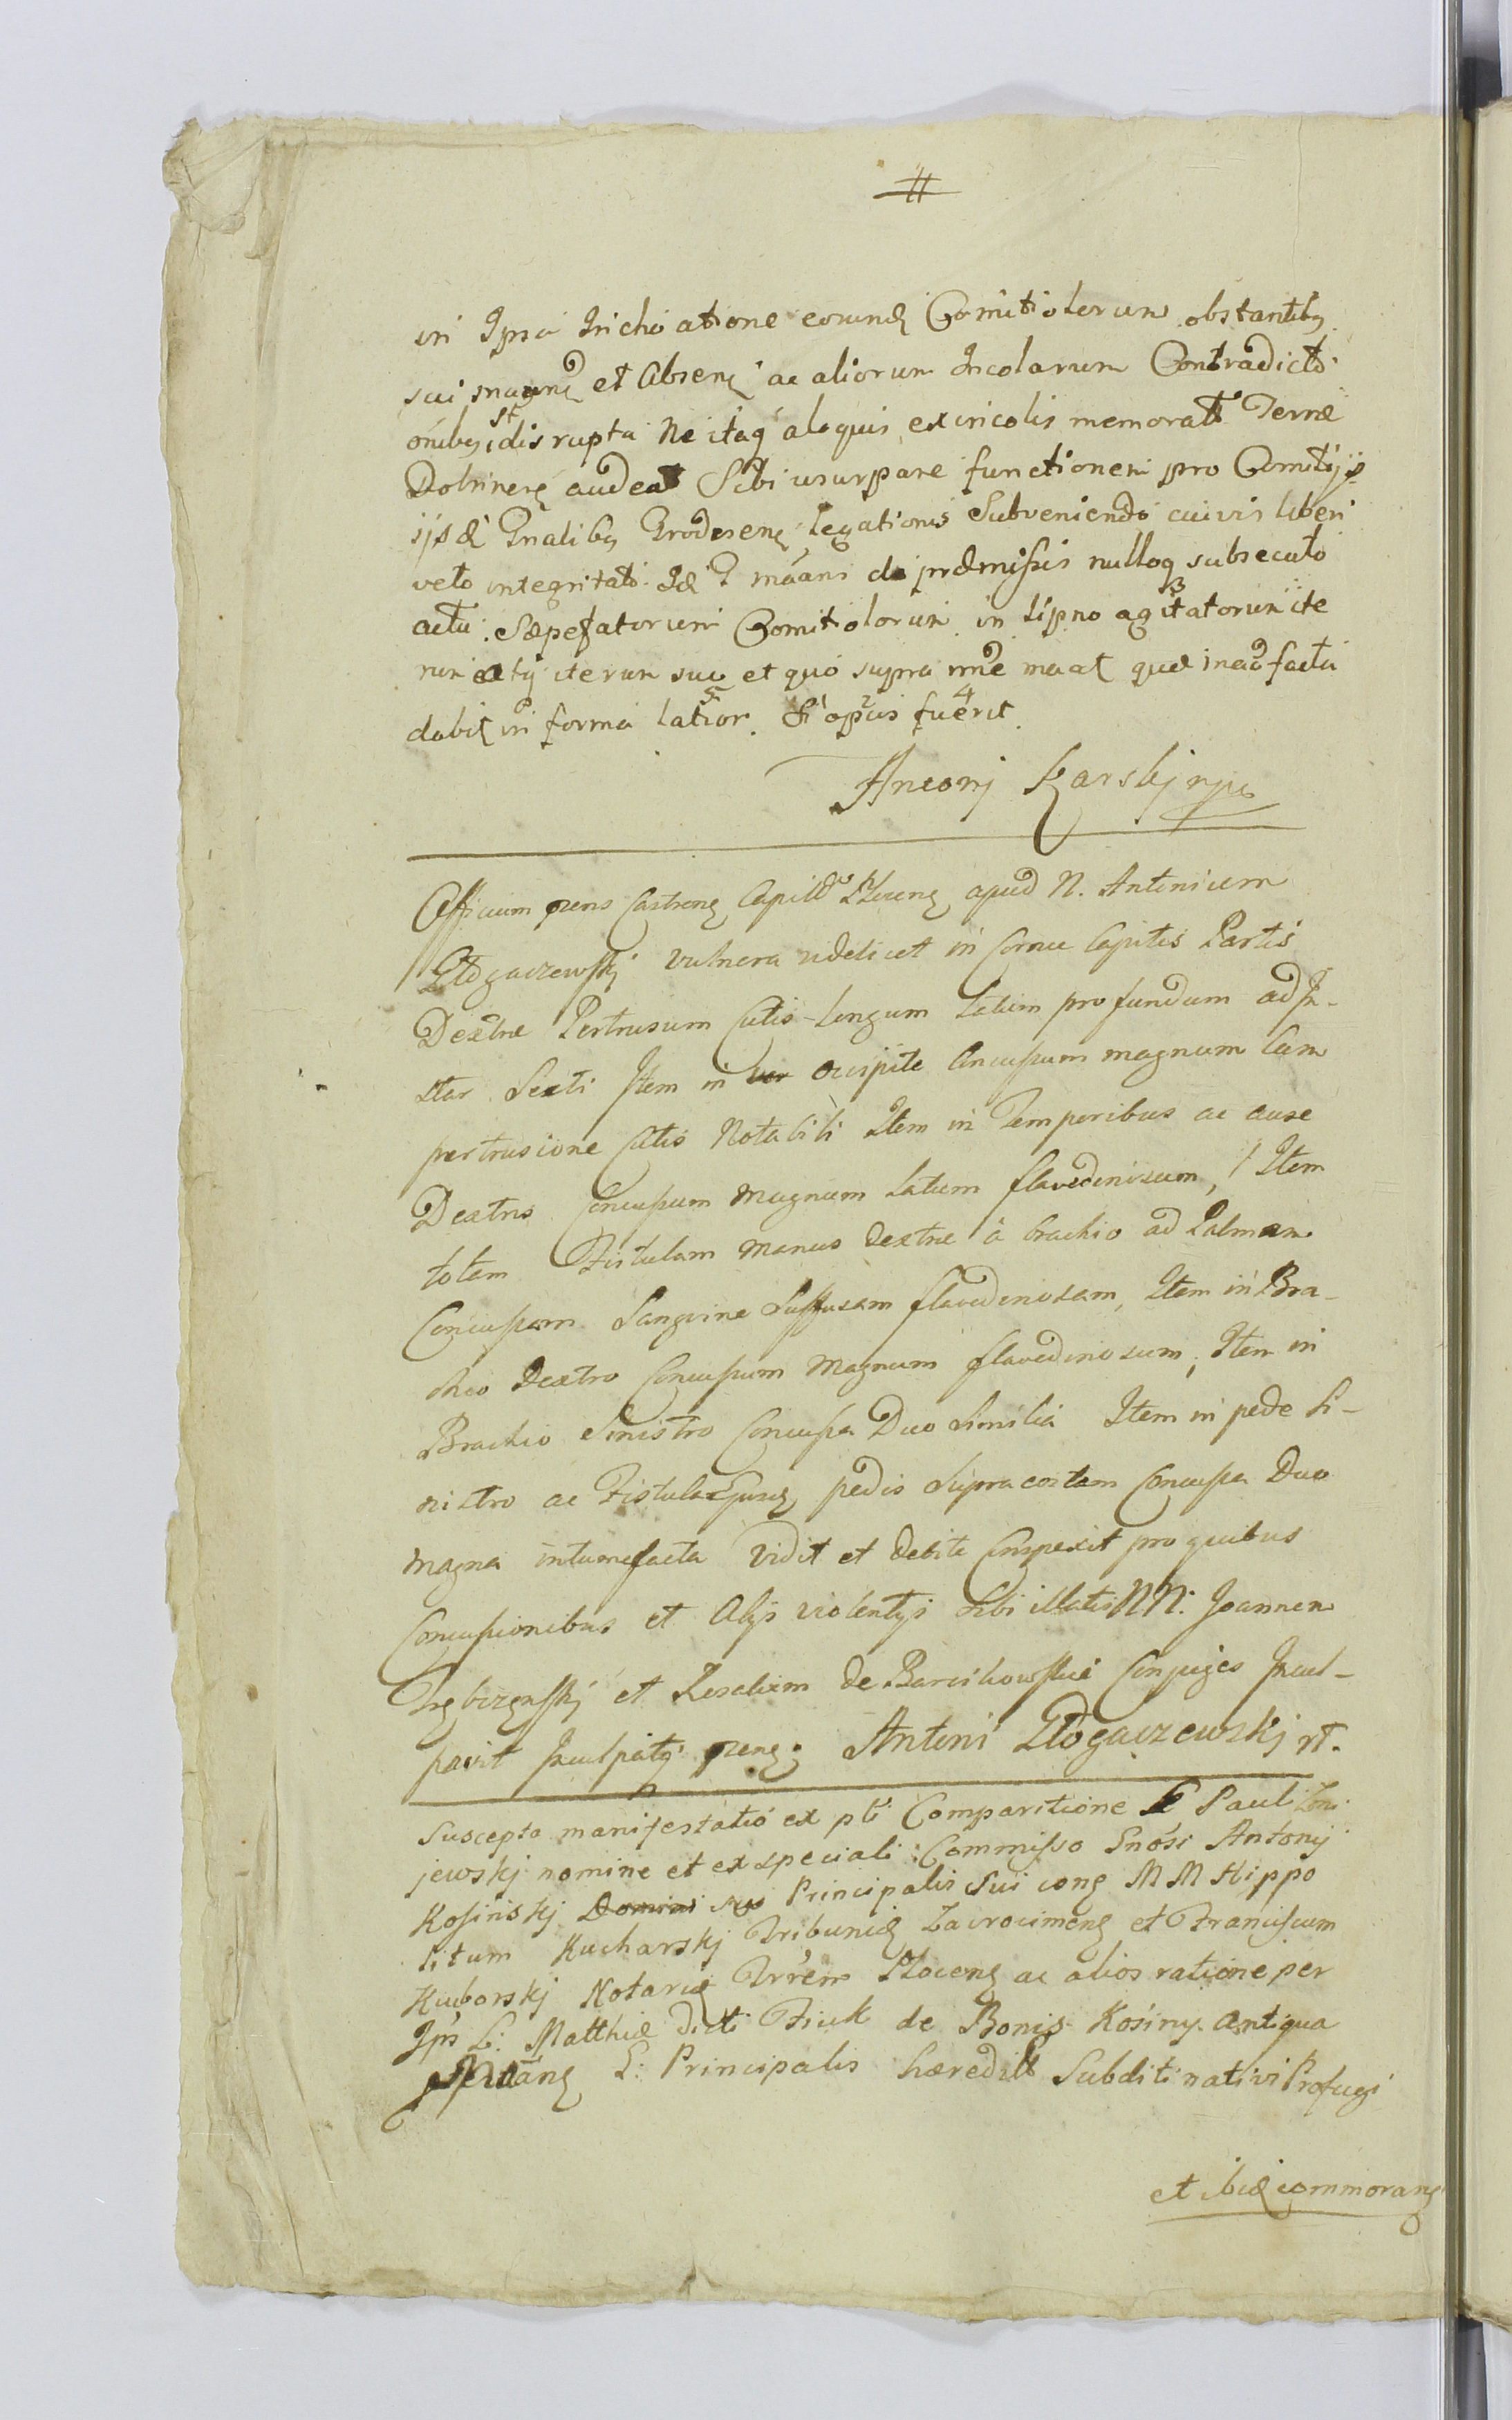 in Ipsa Inchoatione eorund Comitiolorum obstantibg
sui man et Absen ac aliorum Incolarum Contradicto
onibg st disrupta Ne itaq aloquis ex incolis memorat Terræ
Dobrinen audeat Sibi usurpare functionem pro Comitijs
ijsd Gnalibg Grodnen Legationis Subveniendo cuivis liberi
veto integritati Id mans de præmissis nulloq subsecuto
actu Sæpefatorum Comitiolorum in Lipno agitatorum ite
rum iterum suo et quo supra nne quæ facta
dabit in forma latior. Si opus fuerit
Antonj Karskj mp
Officium præns Castren Capitle Plocen apud N. Antonium
Głogaczewskj Vulnera videlicet in Cornu Capitis Partis
Dextræ Pertrusum Cutis Longum Latum profundum ad In-
star Sexti Item in occipite Concussum magnum Cum
pertrusione Cutis Notabili Item in Temporibus ac aure
Dextris Concussum Magnum Latum flavedinosum, Item
totam Fistulam Manus dextræ à brachio ad Palmam
Concussam Sangvine Suffusam flavedinosam, Item in Bra-
chio Dextro Concussum Magnum flavedinosum, Item in
Brachio Sinistro Concussa Duo Similia Item in pede Si-
nistro ac Fistula Ejusd pedis Supra costam Concussa Duo
Magna intumefacta Vidit et Debite Conspexit pro quibus
Concussionibus et Alijs violentijs Sibi illatis NN: Joannem
Trębczenskj et Rosaliam de Barcikowskie Conjuges Incul-
pavit Inculpatq præns. Antoni Głogaczewskj rt.
Suscepta manifestatio ex pti Comparitione G Pauli
jewskj nomine et ex speciali Commisso Gnosi Antonij
Kosinskj Principalis Sui cong MM Hippo
litum Kucharskj Tribunid Zacrocimens et Franciscum
Kuborskj Notariu Trrem Plocens ac alios ratione per
Ips L: Matthiæ dicti Fiuk de Bonis Kosiny Antiqua
G: Principalis hæredit Subditi nativi Profugi
et ibid commorang